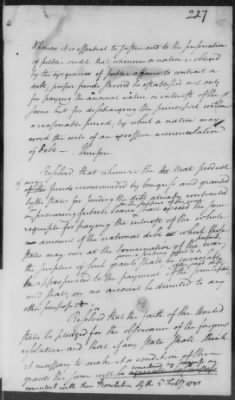 227
Whereas it is essential to justice and to the preservation
of public credit that whenever a nation is obliged
by the exigencies of public affairs to contract a
debt, proper funds should be established not only
for paying the annual value or interest of the
same but for discharging the principal within
a reasonable period, by which a nation may
avoid the evils of an excessive accumulation
of debt. Therefore
Resolved that whenever the nett product
of any of the funds recommended by Congress and granted
by the States for funding the debt already contracted
or procuring future loans shall exceed the sum
requisite for paying the interest of the whole
amount of the national debt which these
States may owe at the termination of the war,
the surplus of such grants shall
be appropriated to the payment of the principal
and shall on no account be diverted to any
other purpose
Resolved that the faith of the United
States be pledged for the observance of the foregoing
resolution and that if any State shall think
it necessary to make it a condition of their
grants the same will be
consistent with their Resolution of the 3 Feby 1781